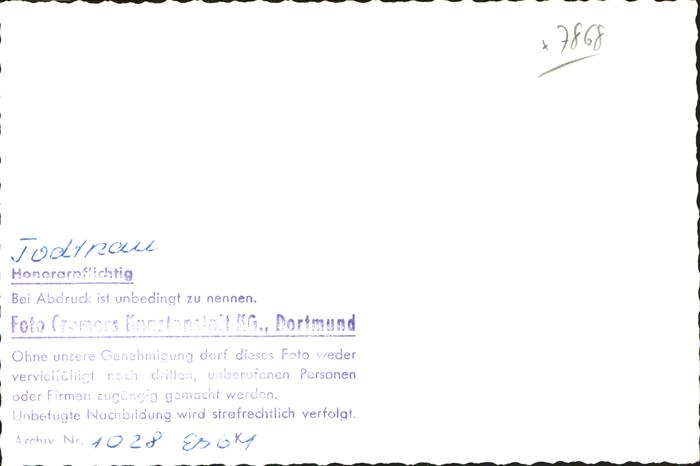 x 7868
Todtnau
Honorarpflichtig
Bei Abdruck ist unbedingt zu nennen.
Foto Cramers Kunstanstalt KG., Dortmund
Ohne unsere Genehmigung darf dieses Foto weder
vervielfältigt noch dritten, unberufenen Personen
oder Firmen zugängig gemacht werden.
Unbefugte Nachbildung wird strafrechtlich verfolgt.
Archiv Nr. 1028